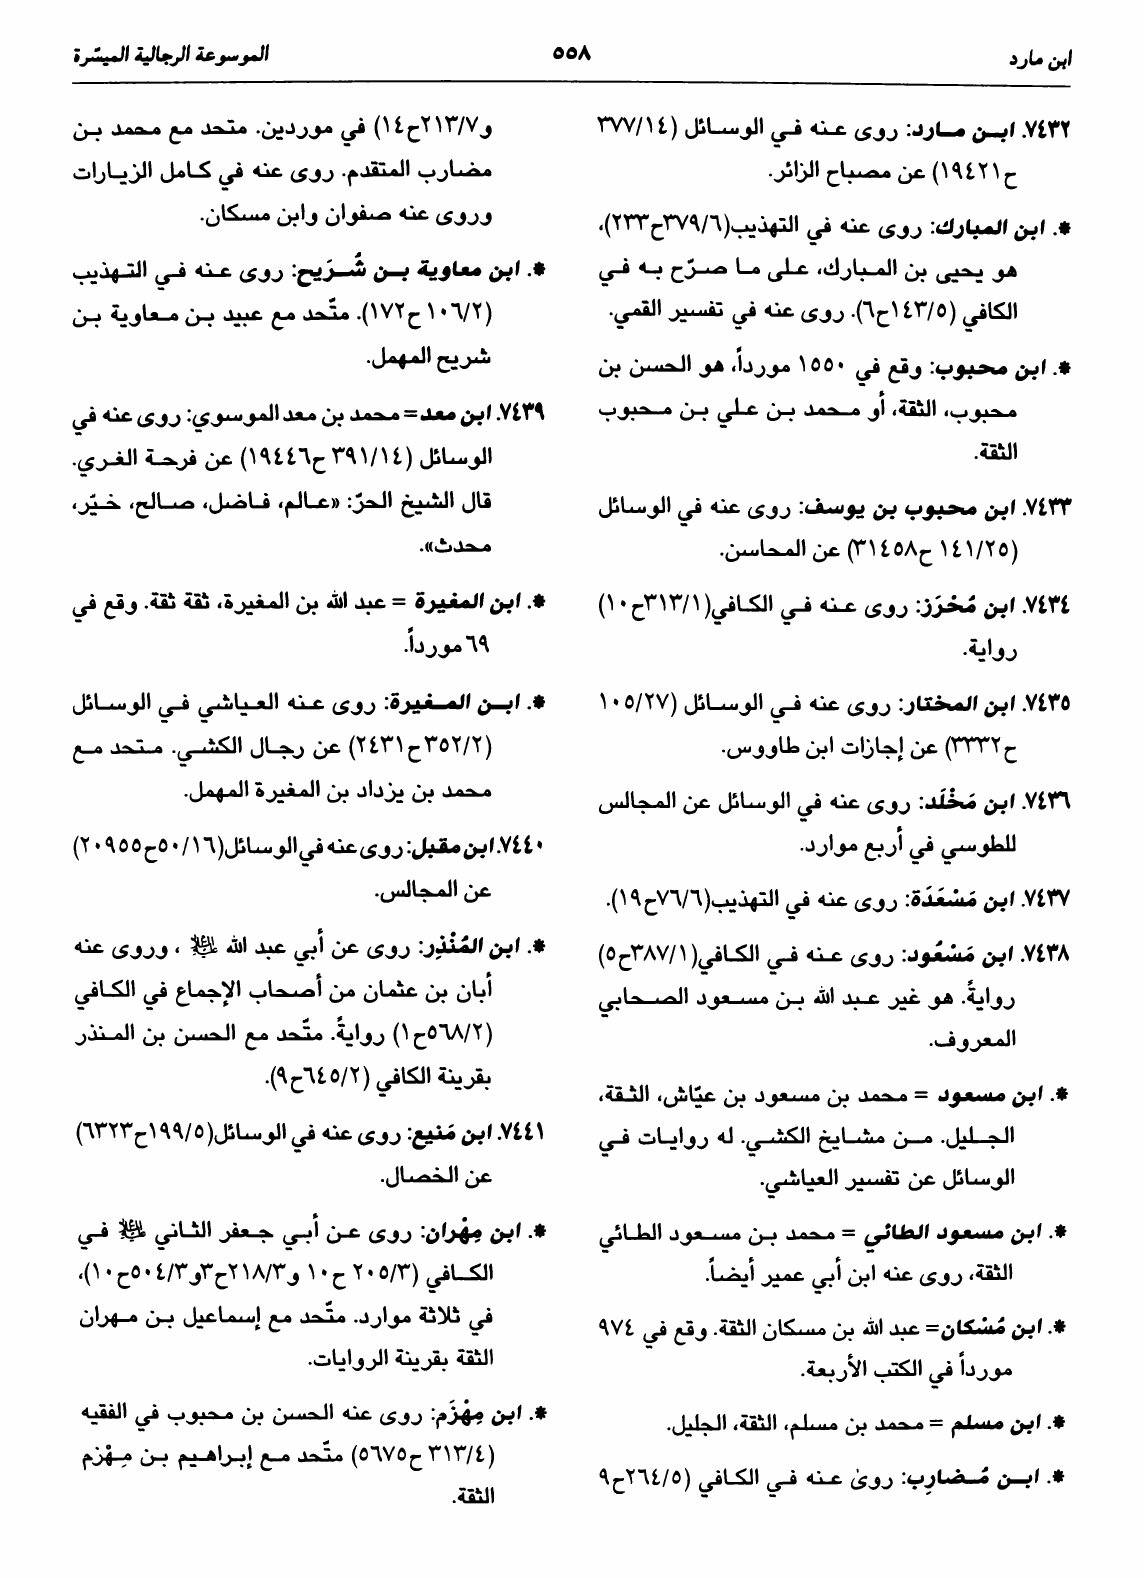 ابن مارد
٥٥٨
الموسوعة الرجالية الميسّرة
٧٤٣٢. ابن مارد: روى عنه في الوسائل (٣٧٧/١٤
ح١٩٤٢١) عن مصباح الزائر.
*. ابن المبارك: روى عنه في التهذيب(٣٧٩/٦ح٢٣٣)،
هو يحيى بن المبارك، على ما صرّح به في
الكافي (١٤٣/٥ح٦). روى عنه في تفسير القمي.
*. ابن محبوب: وقع في ١٥٥٠ مورداً، هو الحسن بن
محبوب، الثقة، أو محمد بن علي بن محبوب
الثقة.
٧٤٣٣. ابن محبوب بن يوسف: روى عنه في الوسائل
(١٤١/٢٥ ح٣١٤٥٨) عن المحاسن.
٧٤٣٤. ابن مُحْرَز: روى عنه في الكافي(٣١٣/١ح١٠)
رواية.
٧٤٣٥. ابن المختار: روى عنه في الوسائل (١٠٥/٢٧
ح٣٣٣٢) عن إجازات ابن طاووس.
٧٤٣٦. ابن مَخْلَد: روى عنه في الوسائل عن المجالس
للطوسي في أربع موارد.
٧٤٣٧. ابن مَسْعَدَة: روى عنه في التهذيب(٧٦/٦ح١٩).
٧٤٣٨. ابن مَسْعُود: روى عنه في الكافي(٣٨٧/١ح٥)
روايةً. هو غير عبد الله بن مسعود الصحابي
المعروف.
*. ابن مسعود = محمد بن مسعود بن عيّاش، الثقة،
الجليل. من مشايخ الكشي. له روايات في
الوسائل عن تفسير العياشي.
*. ابن مسعود الطائي = محمد بن مسعود الطائي
الثقة، روى عنه ابن أبي عمير أيضاً.
*. ابن مُسْكان= عبد الله بن مسكان الثقة. وقع في ٩٧٤
مورداً في الكتب الأربعة.
*. ابن مسلم = محمد بن مسلم، الثقة، الجليل.
*. ابن مُضارِب: روىٰ عنه في الكافي (٢٦٤/٥ح٩
و٢١٣/٧ح١٤) في موردين. متحد مع محمد بن
مضارب المتقدم. روى عنه في كامل الزيارات
وروى عنه صفوان وابن مسكان.
*. ابن معاوية بن شُرَيح: روى عنه في التهذيب
(١٠٦/٢ ح١٧٢). متّحد مع عبيد بن معاوية بن
شريح المهمل.
٧٤٣٩. ابن معد= محمد بن معد الموسوي: روى عنه في
الوسائل (٣٩١/١٤ ح١٩٤٤٦) عن فرحة الغري.
قال الشيخ الحرّ: «عالم، فاضل، صالح، خيّر،
محدث».
*. ابن المغيرة = عبد الله بن المغيرة، ثقة ثقة. وقع في
٦٩مورداً.
*. ابن المغيرة: روى عنه العياشي في الوسائل
(٣٥٢/٢ح٢٤٣١) عن رجال الكشي. متحد مع
محمد بن يزداد بن المغيرة المهمل.
٧٤٤٠. ابن مقبل: روى عنه في الوسائل(٥٠/١٦ح٢٠٩٥٥)
عن المجالس.
*. ابن المُنْذِر: روى عن أبي عبد الله ﷺ ، وروى عنه
أبان بن عثمان من أصحاب الإجماع في الكافي
(٥٦٨/٢ح١) روايةً. متّحد مع الحسن بن المنذر
بقرينة الكافي (٦٤٥/٢ح٩).
٧٤٤١. ابن مَنيع: روى عنه في الوسائل(١٩٩/٥ح٦٣٢٣)
عن الخصال.
*. ابن مِهْران: روى عن أبي جعفر الثاني ﷺ في
الكافي (٢٠٥/٣ ح١٠ و٢١٨/٣ح٣و٥٠٤/٣ح١٠)،
في ثلاثة موارد. متّحد مع إسماعيل بن مهران
الثقة بقرينة الروايات.
*. ابن مِهْزَم: روى عنه الحسن بن محبوب في الفقيه
(٣١٣/٤ ح٥٦٧٥) متّحد مع إبراهيم بن مِهْزم
الثقة.